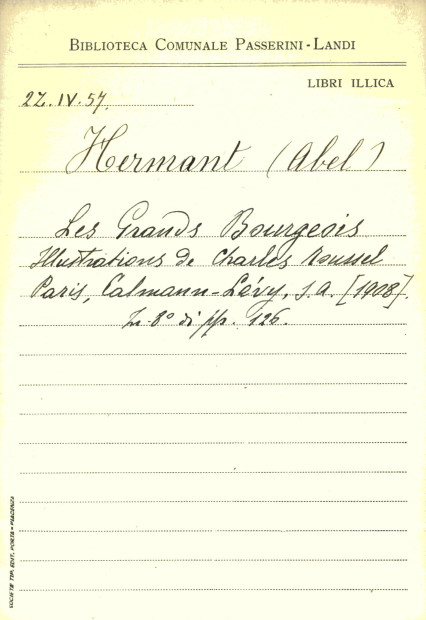 BIBLIOTECA COMUNALE PASSERINI-LANDI
LIBRI ILLICA
22.IV.57
Hermant (Abel)
Les Grands Bourgeois
Illustrations de Charles Roussel
Paris, Calmann-Lévy, s.a. [1908].
In-8° di pp. 126.
SOCIETÀ TIP. EDIT. PORTA - PIACENZA